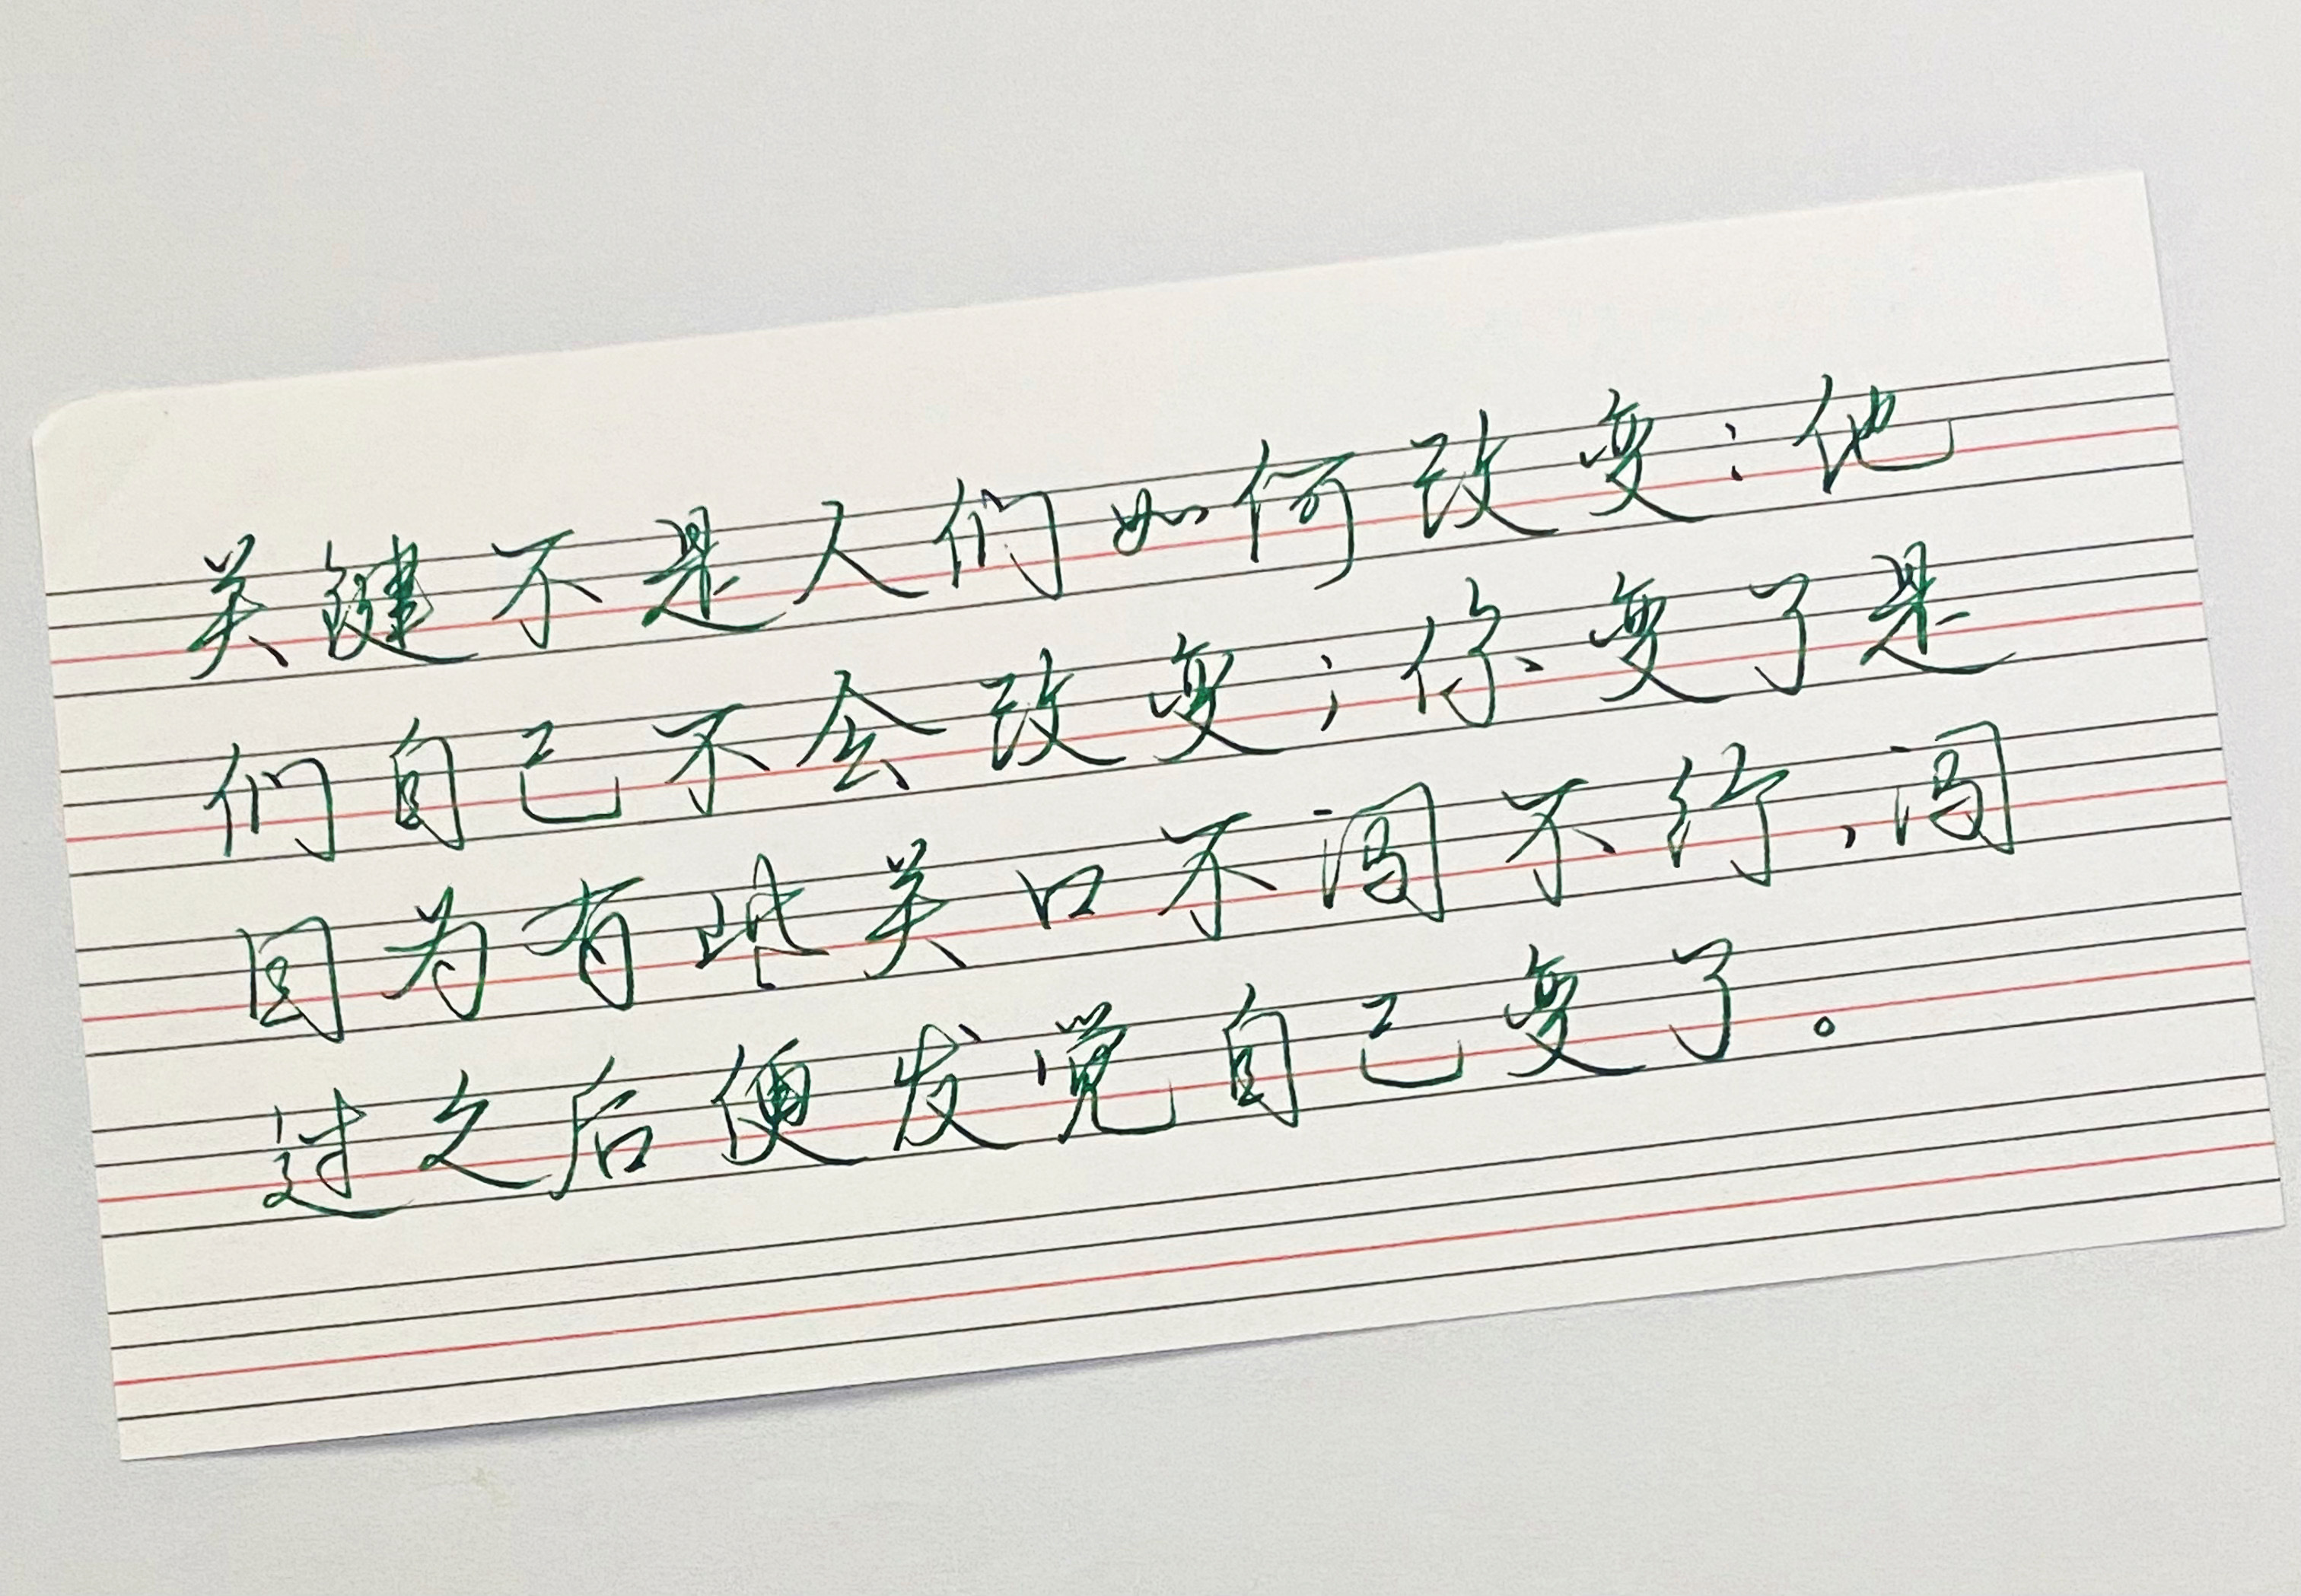 关键不是人们如何改变：他
们自己不会改变；你变了是
因为有些关口不闯不行，闯
过之后便发觉自己变了。